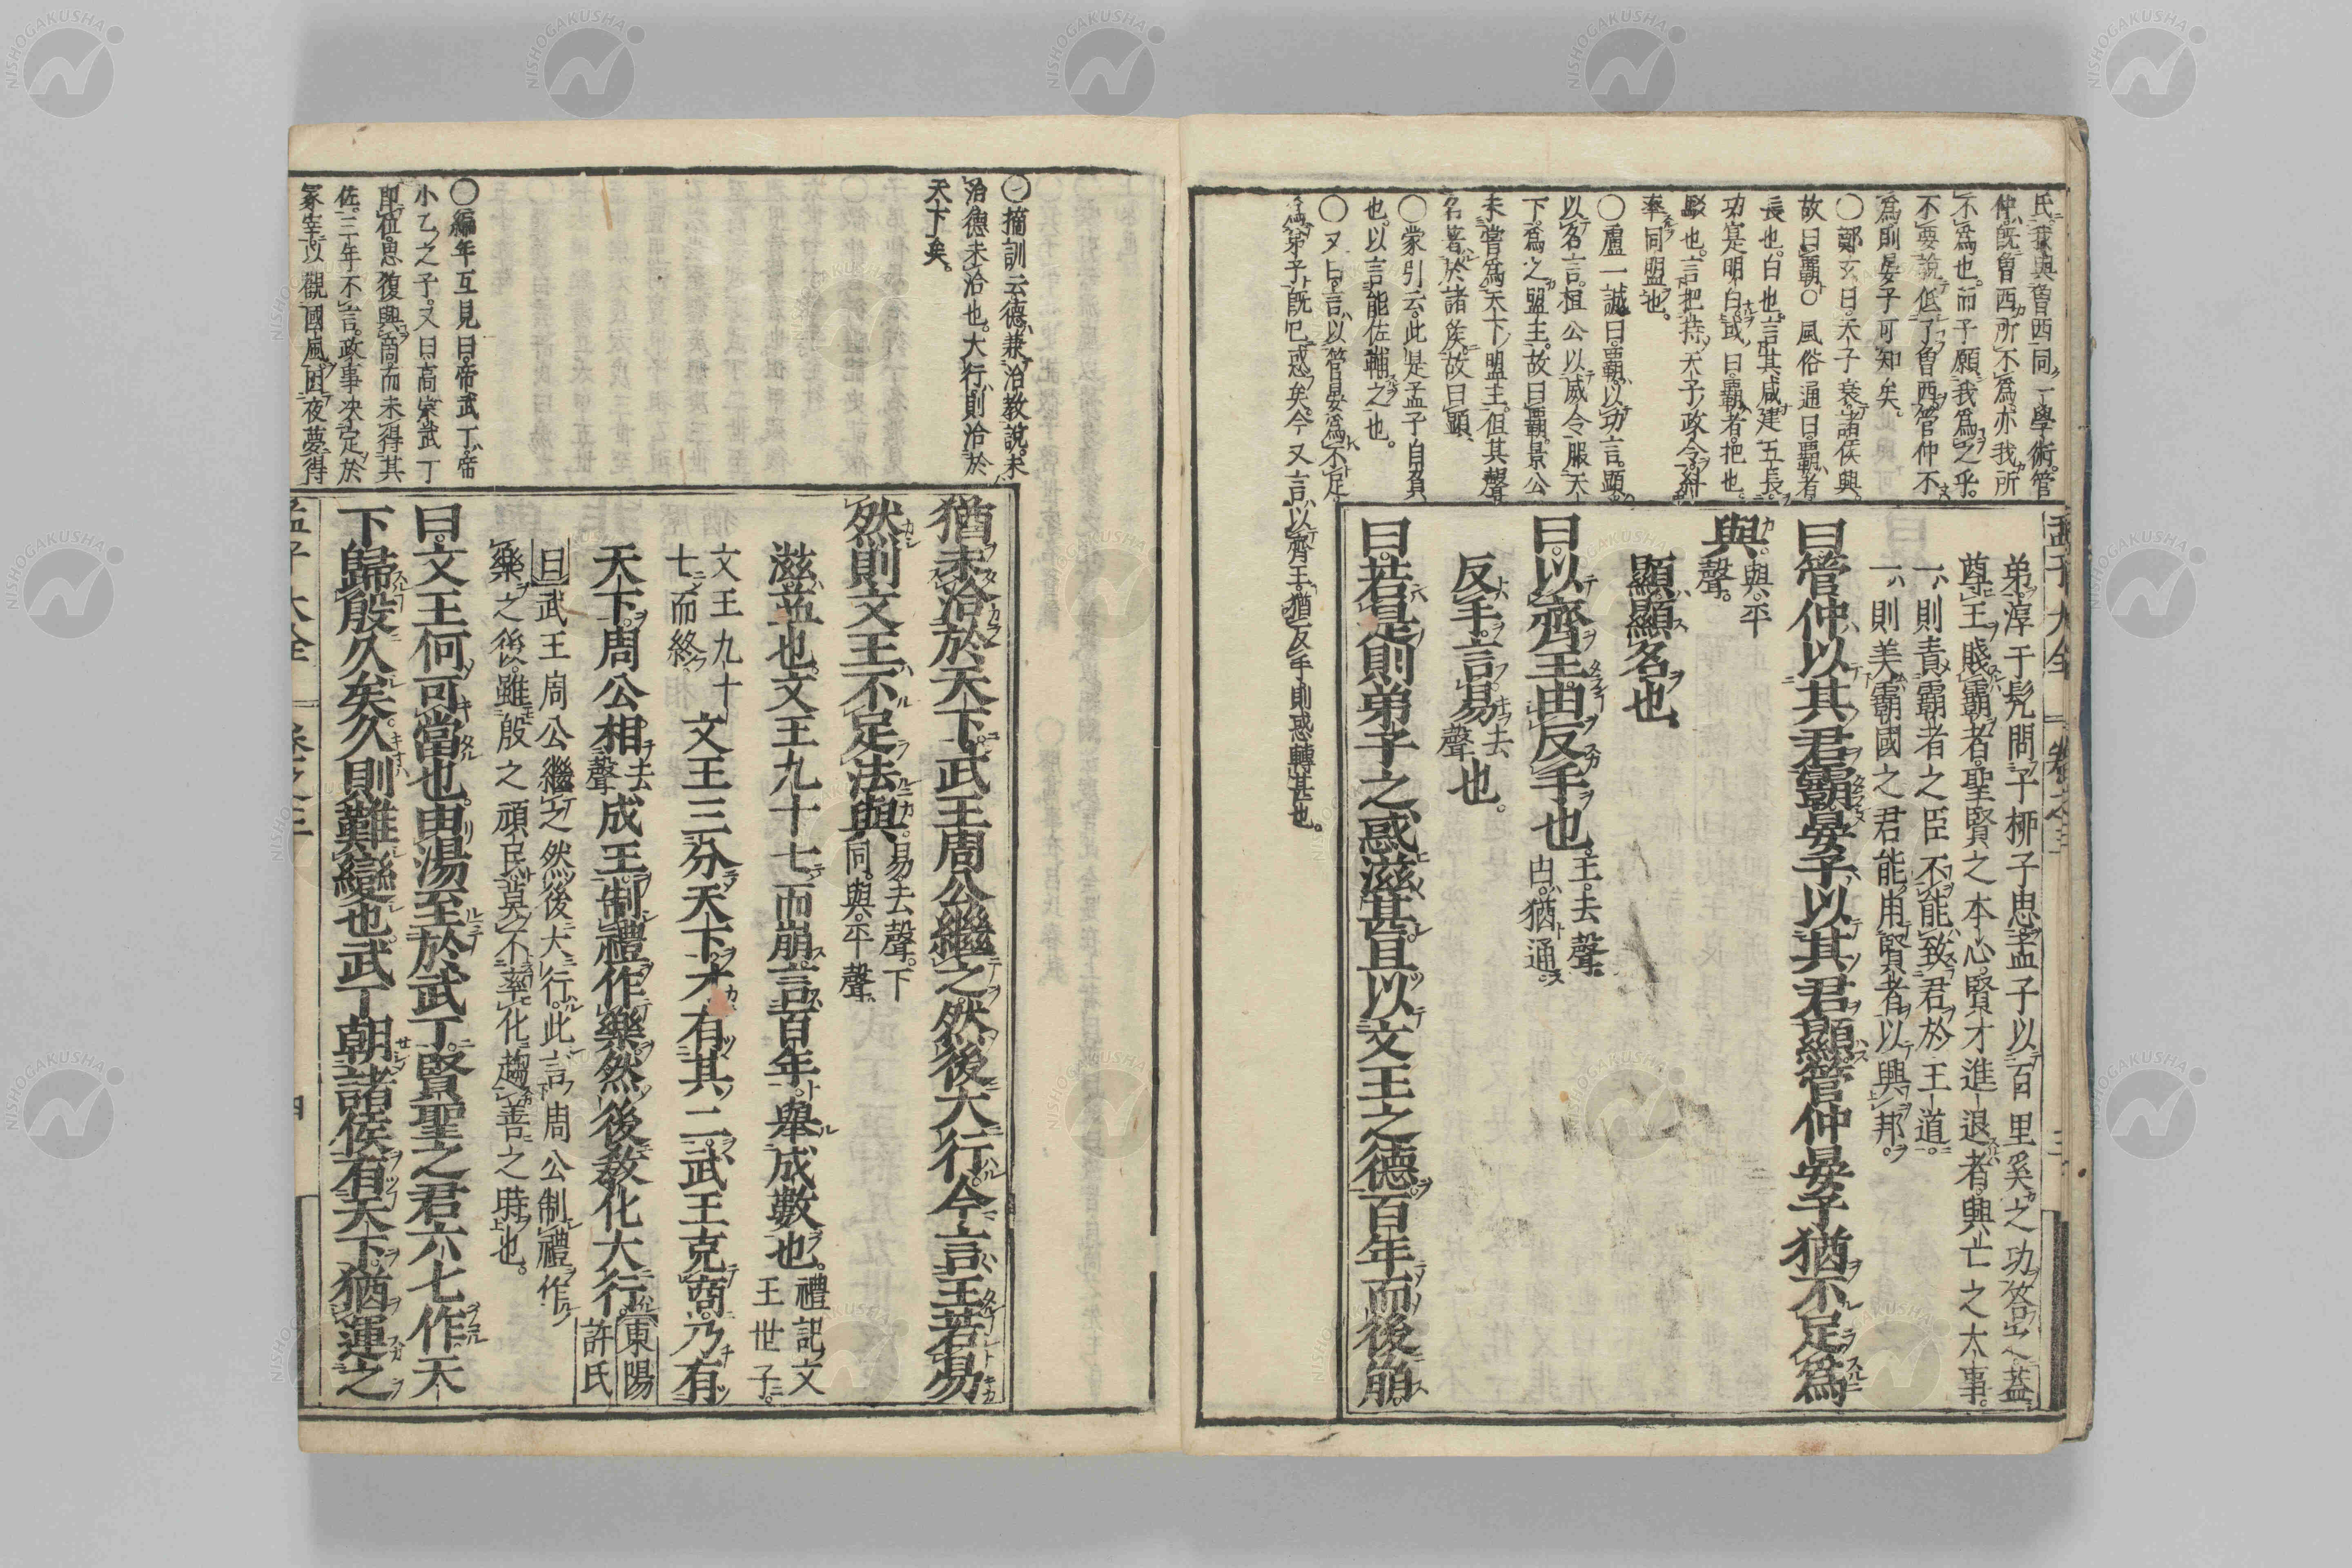 氏我與魯西同一學術管
仲既魯西所不爲亦我所
不爲也而子願我爲之乎
不要說低了魯西管仲不
爲則晏子可知矣
○鄭玄曰天子衰諸侯興
故曰霸○風俗通曰霸者
長也白也言其咸建五長
功寔明白或曰霸者把也
駁也言把持天子政令糾
率同盟也
○盧一誠曰霸以功言顯
以名言桓公以威令服天
下爲之盟主故曰霸景公
未嘗爲天下盟主但其聲
名著於諸侯故曰顯
○蒙引云此是孟子自負
也以言能佐輔之也
○又曰言以管晏爲不足
爲弟子既已惑矣今又言以齊王猶反手則惑轉甚也
孟子大全 卷之三 三
弟淳于髡問子柳子思孟子以百里奚之功答之蓋
尊王賤霸者聖賢之本心賢才進退者興亡之大事
一則責霸者之臣不能致君於王道
一則美霸國之君能用賢者以興邦
曰管仲以其君霸晏子以其君顯管仲晏子猶不足爲
與與平聲
顯顯名也
曰以齊王由反手也王去聲由猶通
反手言易去聲也
曰若是則弟子之惑滋甚且以文王之德百年而後崩
○摘訓云德兼治教說未
洽德未洽也大行則洽於
天下矣
○編年互見曰帝武丁帝
小乙之子又曰高宗武丁
即位思復興商而未得其
佐三年不言政事决定於
冢宰以觀國風因夜夢得
猶未洽於天下武王周公繼之然後大行今言王若易
然則文王不足法與易去聲下同與平聲
滋益也文王九十七而崩言百年舉成數也禮記文王世子
文王九十七而終文王三分天下才有其二武王克商乃有
天下周公相去聲成王制禮作樂然後教化大行東陽許氏
曰武王周公繼之然後大行此言周公制禮作
樂之後雖殷之頑民莫不率化趨善之時也
曰文王何可當也由湯至於武丁賢聖之君六七作天
下歸殷久矣久則難變也武丁朝諸侯有天下猶運之
孟子大全 卷之三 四